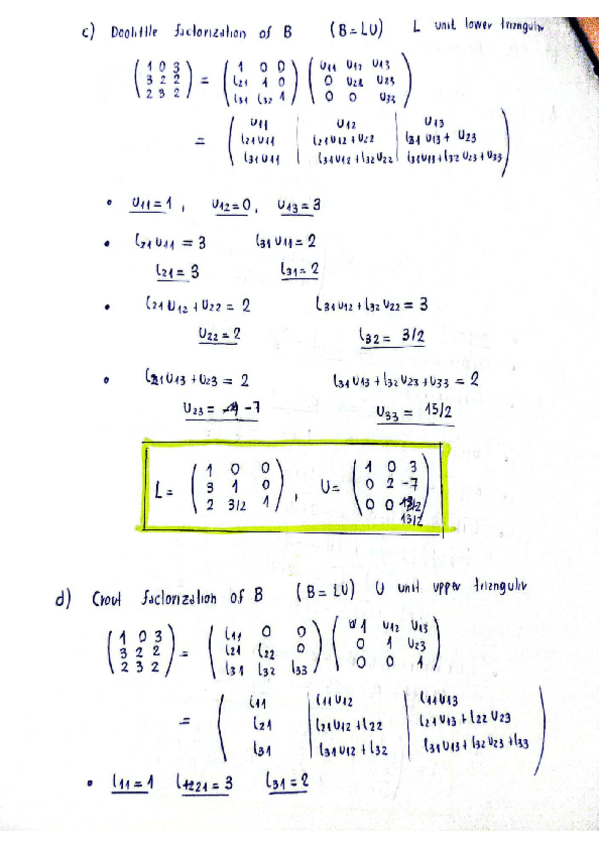 c) Doolittle factorization of B (B=LU) L unit lower triangular
(1 0 3 1 0 0 U11 U12 U13
3 2 2 = L21 1 0 0 U22 U23
2 3 2) L31 L32 1 0 0 U33
= U11 | U12 | U13
L21U11 | L21U12+U22 | L31U13+U23
L31U11 | L31U12+L32U22 | L31U13+L32U23+U33
• U11=1, U12=0, U13=3
• L21U11=3 L31U11=2
L21=3 L31=2
• L21U12+U22=2 L31U12+L32U22=3
U22=2 L32=3/2
• L21U13+U23=2 L31U13+L32U23+U33=2
U23= -7 U33= 15/2
1 0 0 1 0 3
L= 3 1 0 , U= 0 2 -7
2 3/2 1 0 0
13/2
d) Crout factorization of B (B=LU) U unit upper triangular
1 0 3 L11 0 0 1 U12 U13
3 2 2 = L21 L22 0 0 1 U23
2 3 2 L31 L32 L33 0 0 1
L11 | L11U12 | L11U13
= L21 | L21U12+L22 | L21U13+L22U23
L31 | L31U12+L32 | L31U13+L32U23+L33
• L11=1 L21=3 L31=2